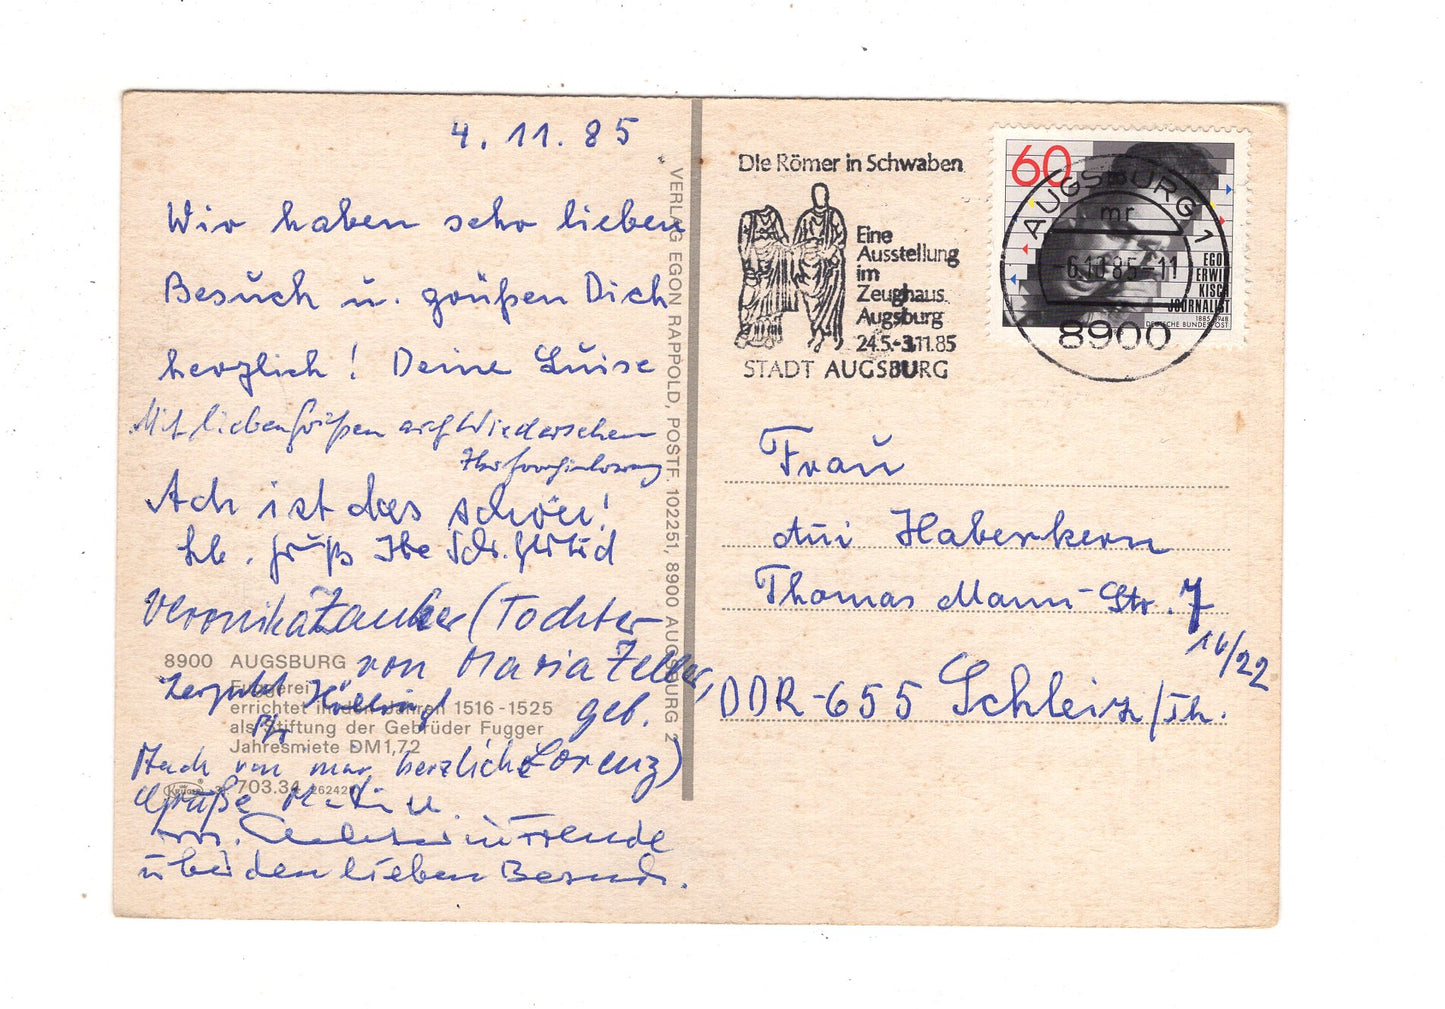 4.11.85
Wir haben sehr lieben
Besuch u. grüßen Dich
herzlich! Deine Luise
Mit lieben Grüßen auf Wiedersehen
Ach ist das schön!
hb. grüß
Veronika Zauker (Tochter
von Maria Zeller,
geb.
Lorenz)
Auch von mir herzliche
Grüße
in Freude
über den lieben Besuch.
8900 AUGSBURG
Fuggerei
errichtet in den Jahren 1516-1525
als Stiftung der Gebrüder Fugger
Jahresmiete DM 1,72
KRÜGER
703.34
VERLAG EGON RAPPOLD, POSTF. 102251, 8900 AUGSBURG 2
Die Römer in Schwaben
Eine
Ausstellung
im
Zeughaus
Augsburg
24.5.-3.11.85
STADT AUGSBURG
60
EGON
ERWIN
KISCH
JOURNALIST
1885-1948
DEUTSCHE BUNDESPOST
AUGSBURG 1
mr
-6.10.85-11
8900
Frau
Ani Haberkern
Thomas Mann-Str. 7
16/22
DDR-655 Schleiz/Th.